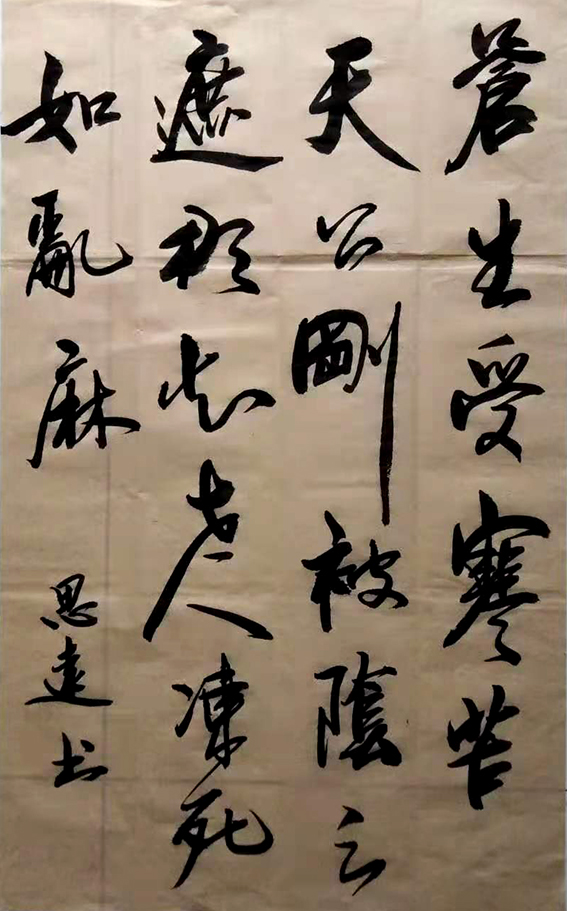 蒼生受寒苦
天公剛被陰云
遮知老人凍死
如亂麻
思遠书